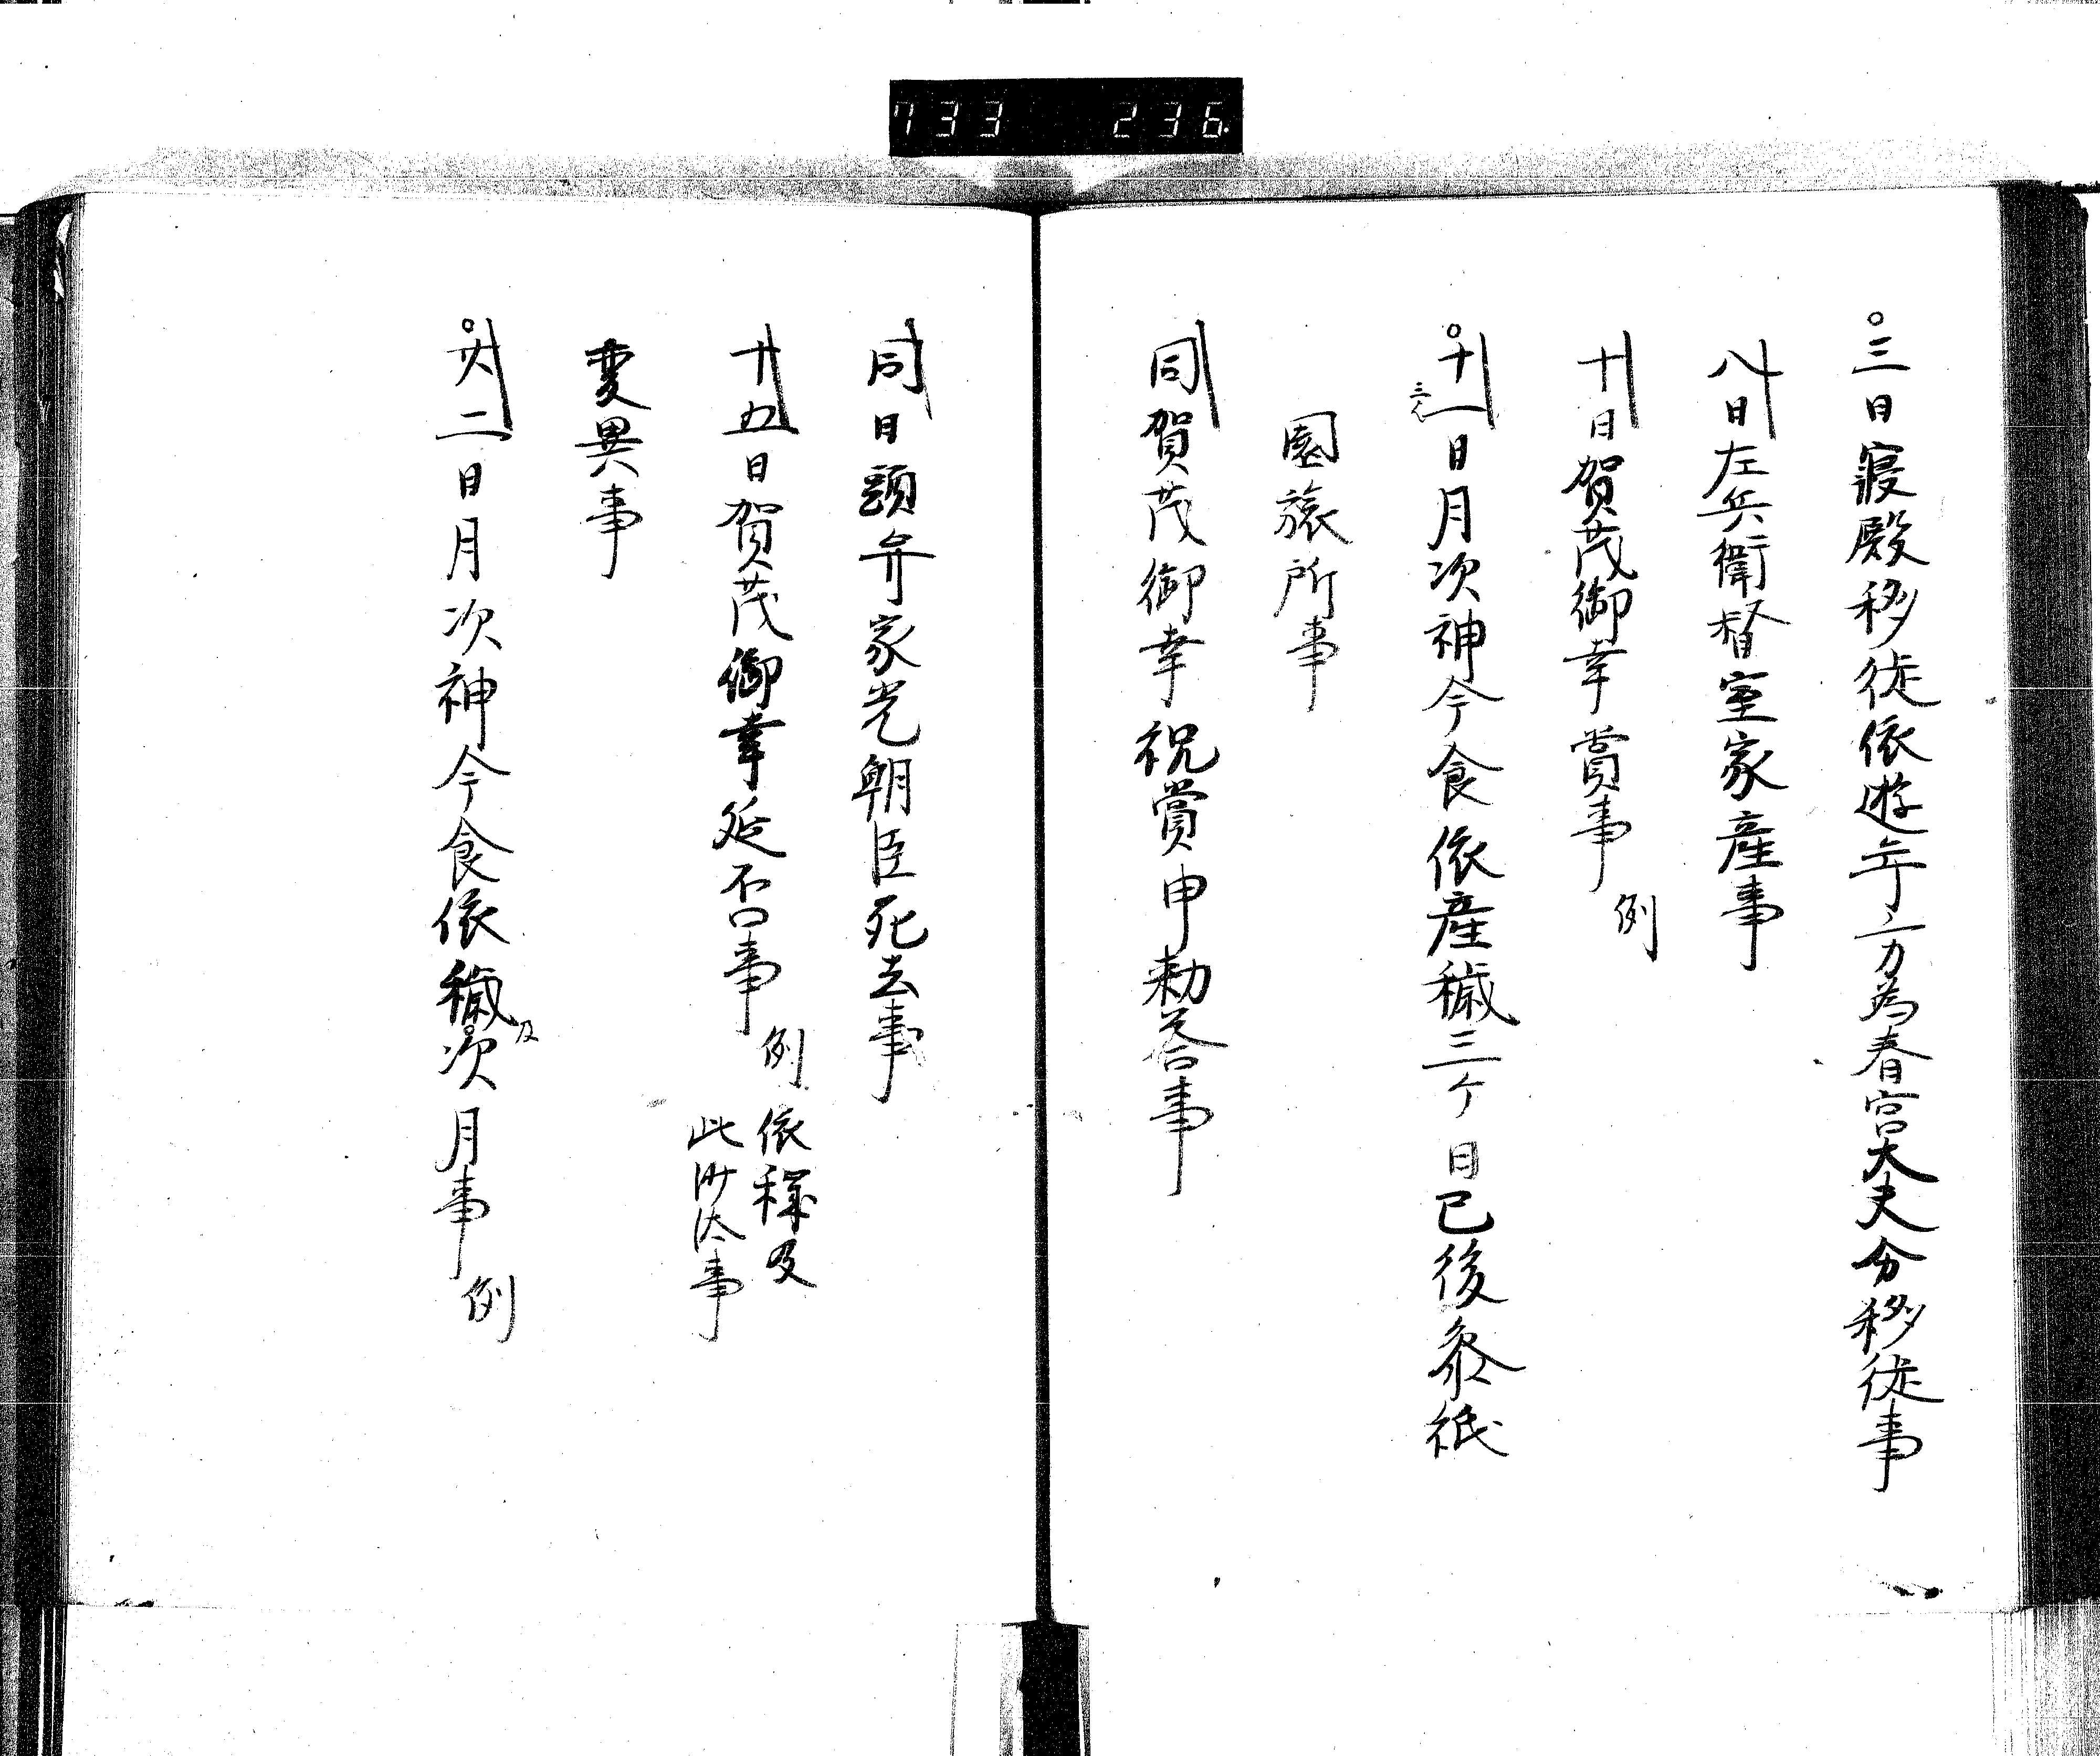 733 236
三日寝殿移徙依遊年方為春宮大夫分移徙事
八日左兵衛督室家産事
十日賀茂御幸賞事 例
十一日月次神今食依産穢三ケ日已後参祇
園旅所事
同賀茂御幸祝賞申勅答事
同日頭弁家光朝臣死去事
廿五日賀茂御幸延否事 例 依穢及
此沙汰事
変異事
二日月次神今食依穢及次月事 例